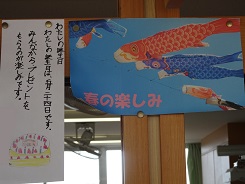 わたしの誕生日
わたしの誕生日は、八月二十四日です。
みんなからプレゼントを
もらうのが楽しみです。
春の楽しみ